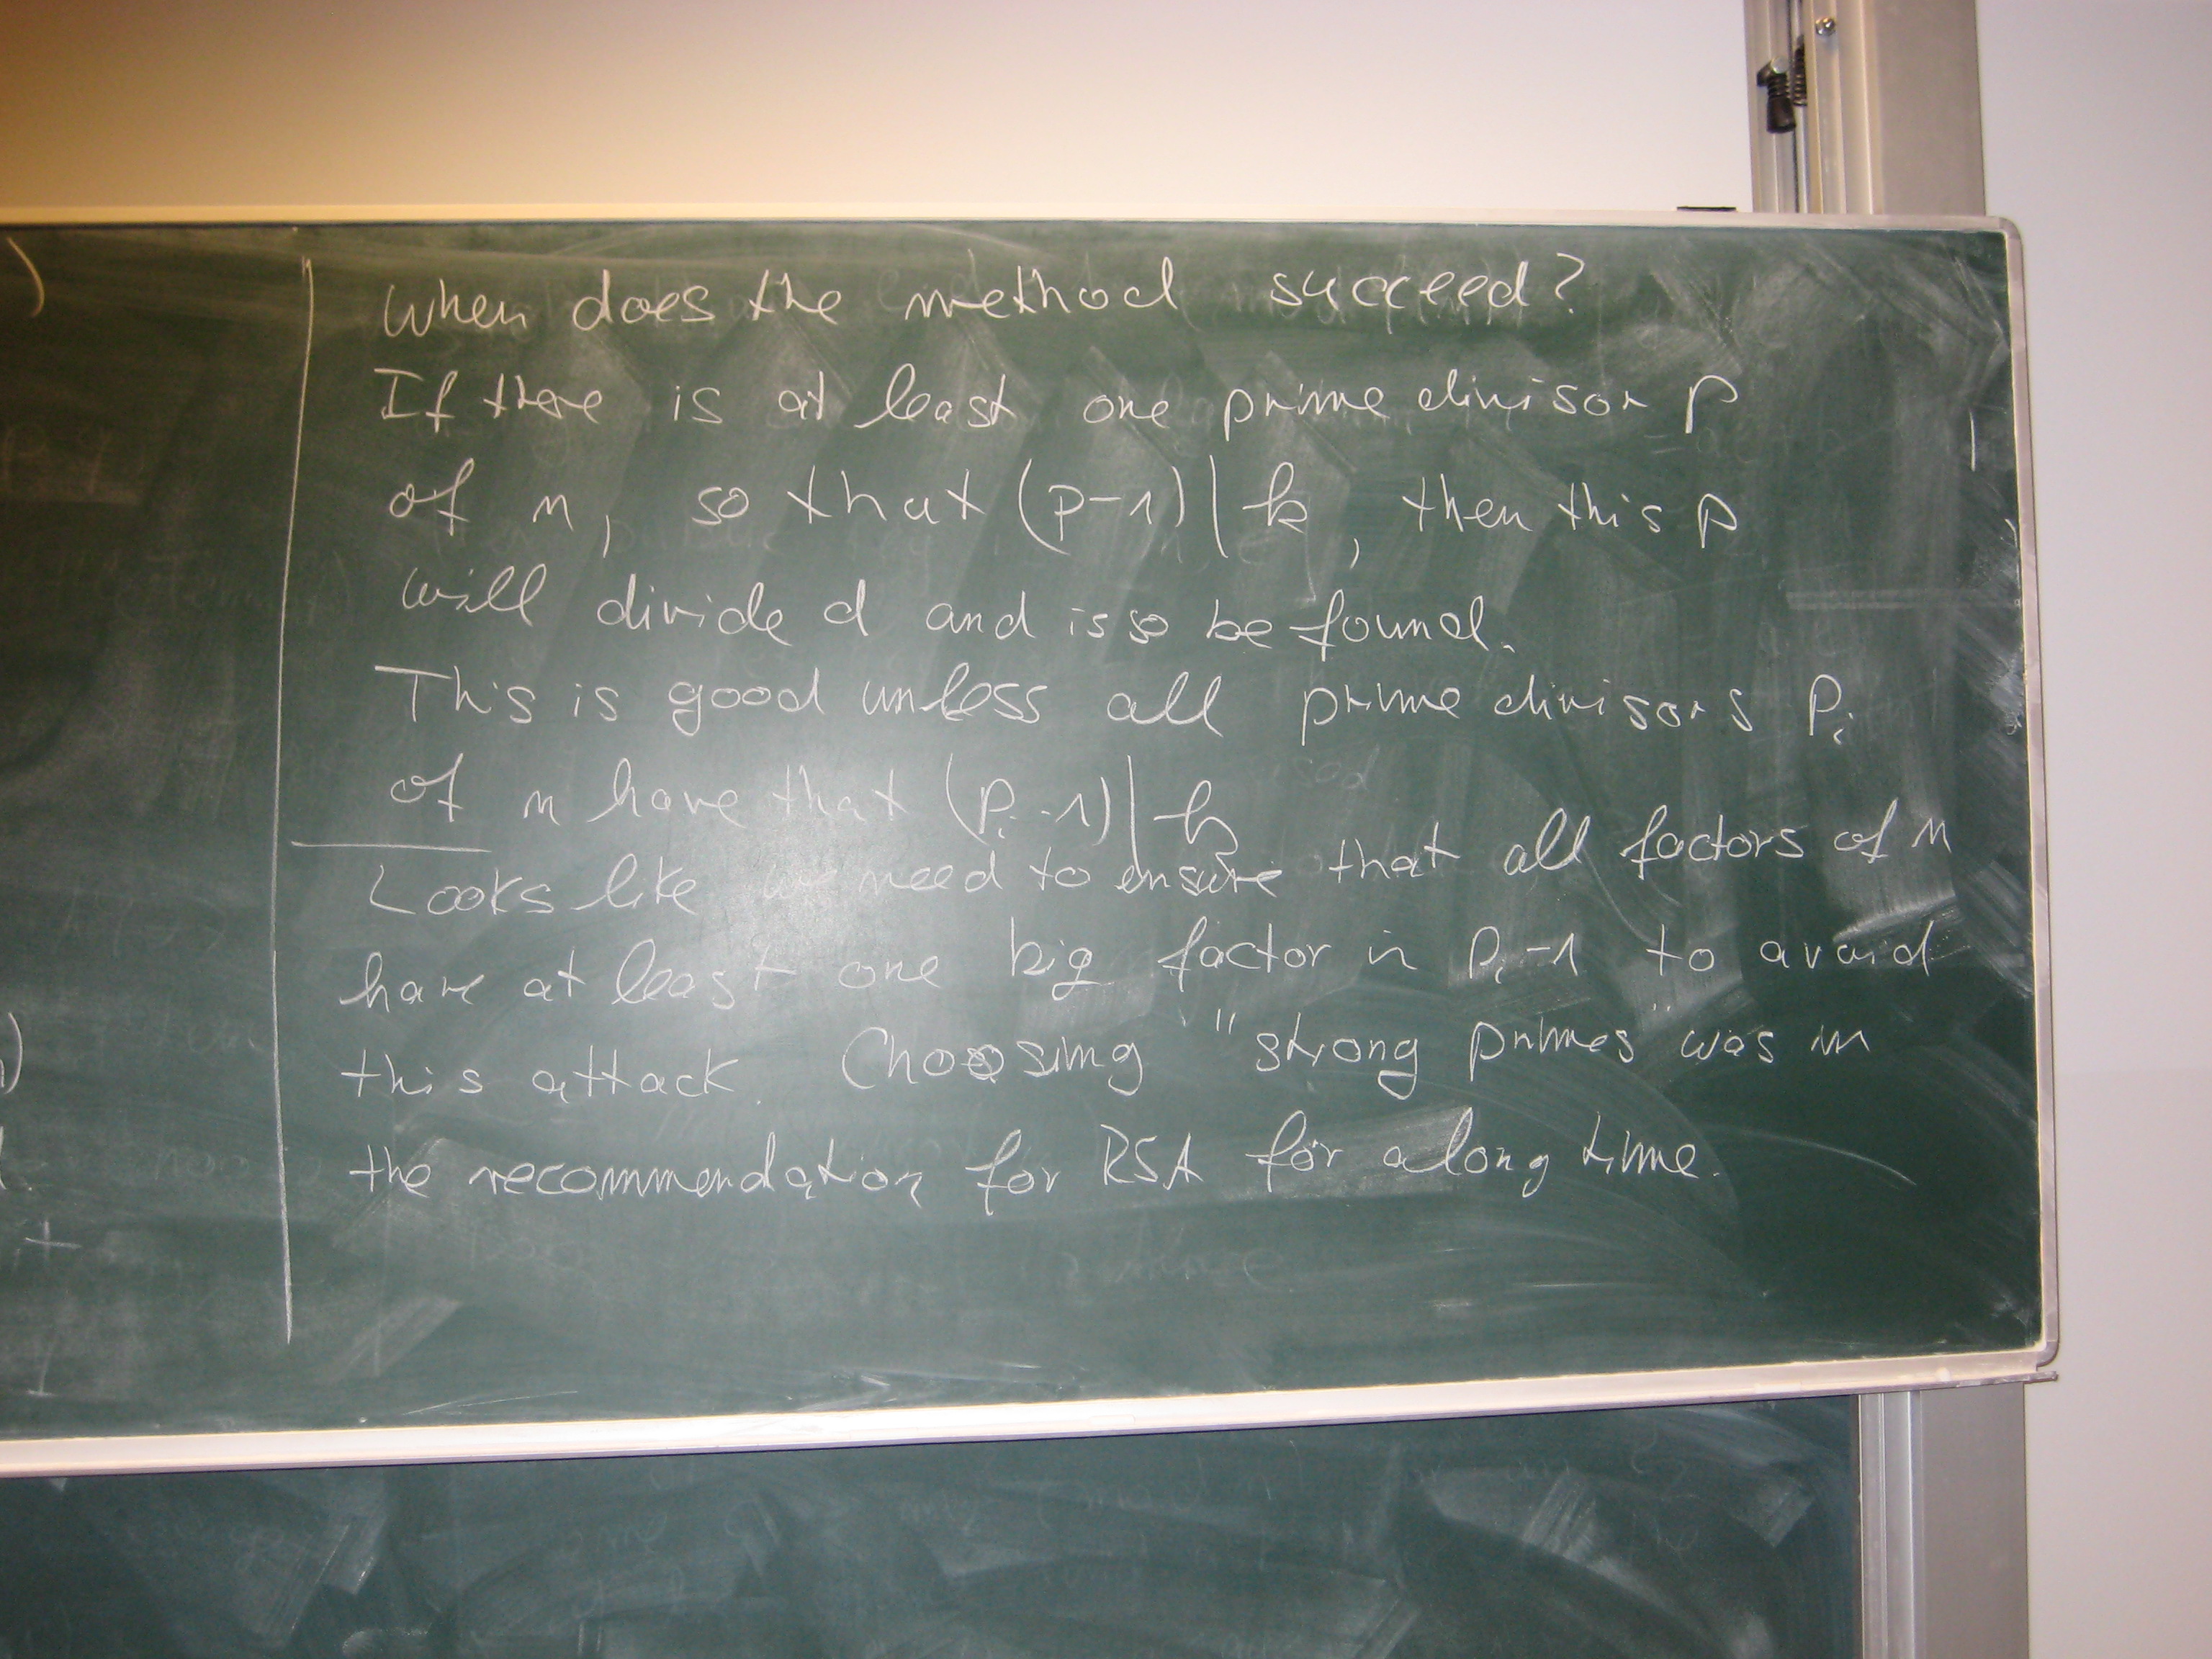 When does the method succeed?
If there is at least one prime divisor p
of n, so that (p-1)|k, then this p
will divide d and is so be found.
This is good unless all prime divisors pi
of n have that (pi-1)|k
Looks like we need to ensure that all factors of n
have at least one big factor in pi-1 to avoid
this attack. Choosing "strong primes" was in
the recommendation for RSA for a long time.